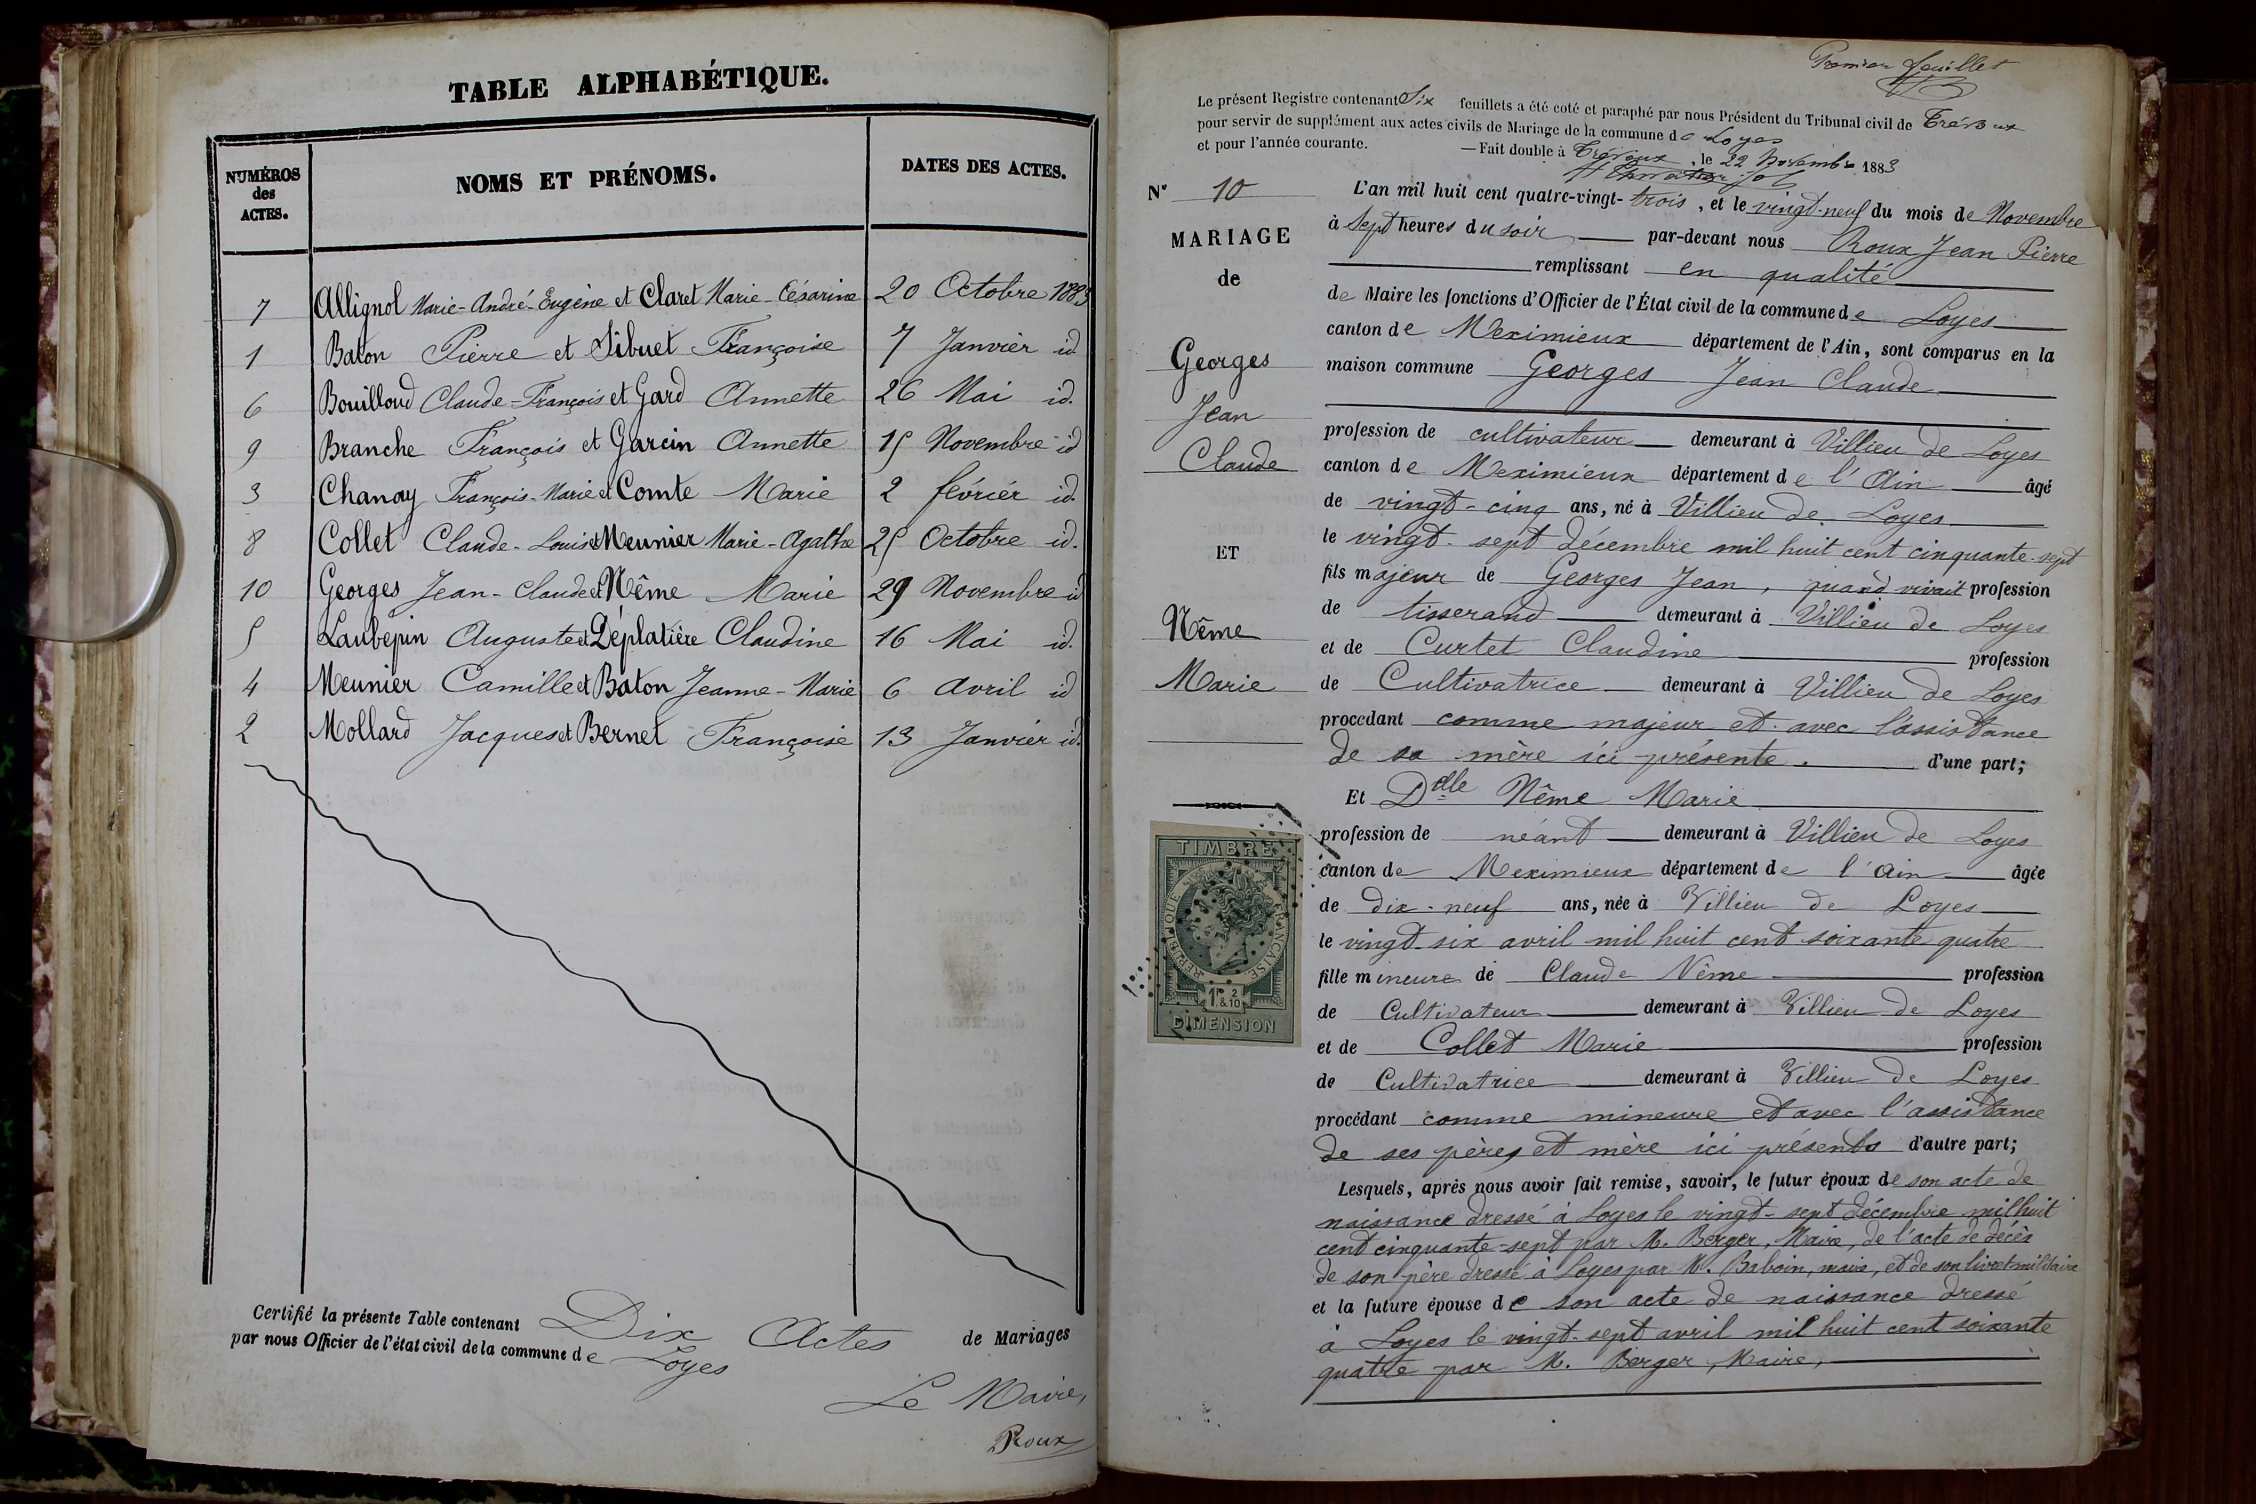 TABLE ALPHABÉTIQUE.
NUMÉROS des ACTES. NOMS ET PRÉNOMS. DATES DES ACTES.
7 Allignol Marie-André-Eugène et Claret Marie-Césarine 20 Octobre 1883
1 Baton Pierre et Sibuet Françoise 7 Janvier id
6 Bouilloud Claude-François et Gard Annette 26 Mai id.
9 Branche François et Garcin Annette 15 Novembre id
3 Chanay François-Marie et Comte Marie 2 février id.
8 Collet Claude-Louis et Meunier Marie-Agathe 25 Octobre id.
10 Georges Jean-Claude et Nême Marie 29 Novembre id
5 Laubépin Auguste et Déplatière Claudine 16 Mai id.
4 Meunier Camille et Baton Jeanne-Marie 6 Avril id
2 Mollard Jacques et Bernet Françoise 13 Janvier id.
Certifié la présente Table contenant Dix Actes de Mariages
par nous Officier de l'état civil de la commune de Loyes
Le Maire,
Roux
Premier feuillet
Le présent Registre contenant Six feuillets a été coté et paraphé par nous Président du Tribunal civil de Trévoux
pour servir de supplément aux actes civils de Mariage de la commune de Loyes
et pour l'année courante. — Fait double à Trévoux, le 22 Novembre 1883
N° 10
MARIAGE
de
Georges
Jean
Claude
ET
Nême
Marie
L'an mil huit cent quatre-vingt-trois, et le vingt-neuf du mois de Novembre
à Sept heures du soir par-devant nous Roux Jean Pierre
remplissant en qualité
de Maire les fonctions d'Officier de l'État civil de la commune de Loyes
canton de Meximieux département de l'Ain, sont comparus en la
maison commune Georges Jean Claude
profession de cultivateur demeurant à Villieu de Loyes
canton de Meximieux département de l'Ain âgé
de vingt-cinq ans, né à Villieu de Loyes
le vingt-sept décembre mil huit cent cinquante-sept
fils majeur de Georges Jean, quand vivait profession
de tisserand demeurant à Villieu de Loyes
et de Curtet Claudine profession
de Cultivatrice demeurant à Villieu de Loyes
procédant comme majeur et avec l'assistance
de sa mère ici présente. d'une part;
Et Delle Nême Marie
profession de néant demeurant à Villieu de Loyes
canton de Meximieux département de l'Ain âgée
de dix-neuf ans, née à Villieu de Loyes
le vingt-six avril mil huit cent soixante quatre
fille mineure de Claude Nême profession
de Cultivateur demeurant à Villieu de Loyes
et de Collet Marie profession
de Cultivatrice demeurant à Villieu de Loyes
procédant comme mineure et avec l'assistance
de ses pères et mère ici présents d'autre part;
Lesquels, après nous avoir fait remise, savoir, le futur époux de son acte de
naissance dressé à Loyes le vingt-sept décembre mil huit
cent cinquante-sept par M. Berger, Maire, de l'acte de décès
de son père dressé à Loyes par M. Baboin, maire, et de son livret militaire
et la future épouse de son acte de naissance dressé
à Loyes le vingt-sept avril mil huit cent soixante
quatre par M. Berger, Maire,
TIMBRE
RÉPUBLIQUE FRANÇAISE
1F. 2 & 10
DIMENSION